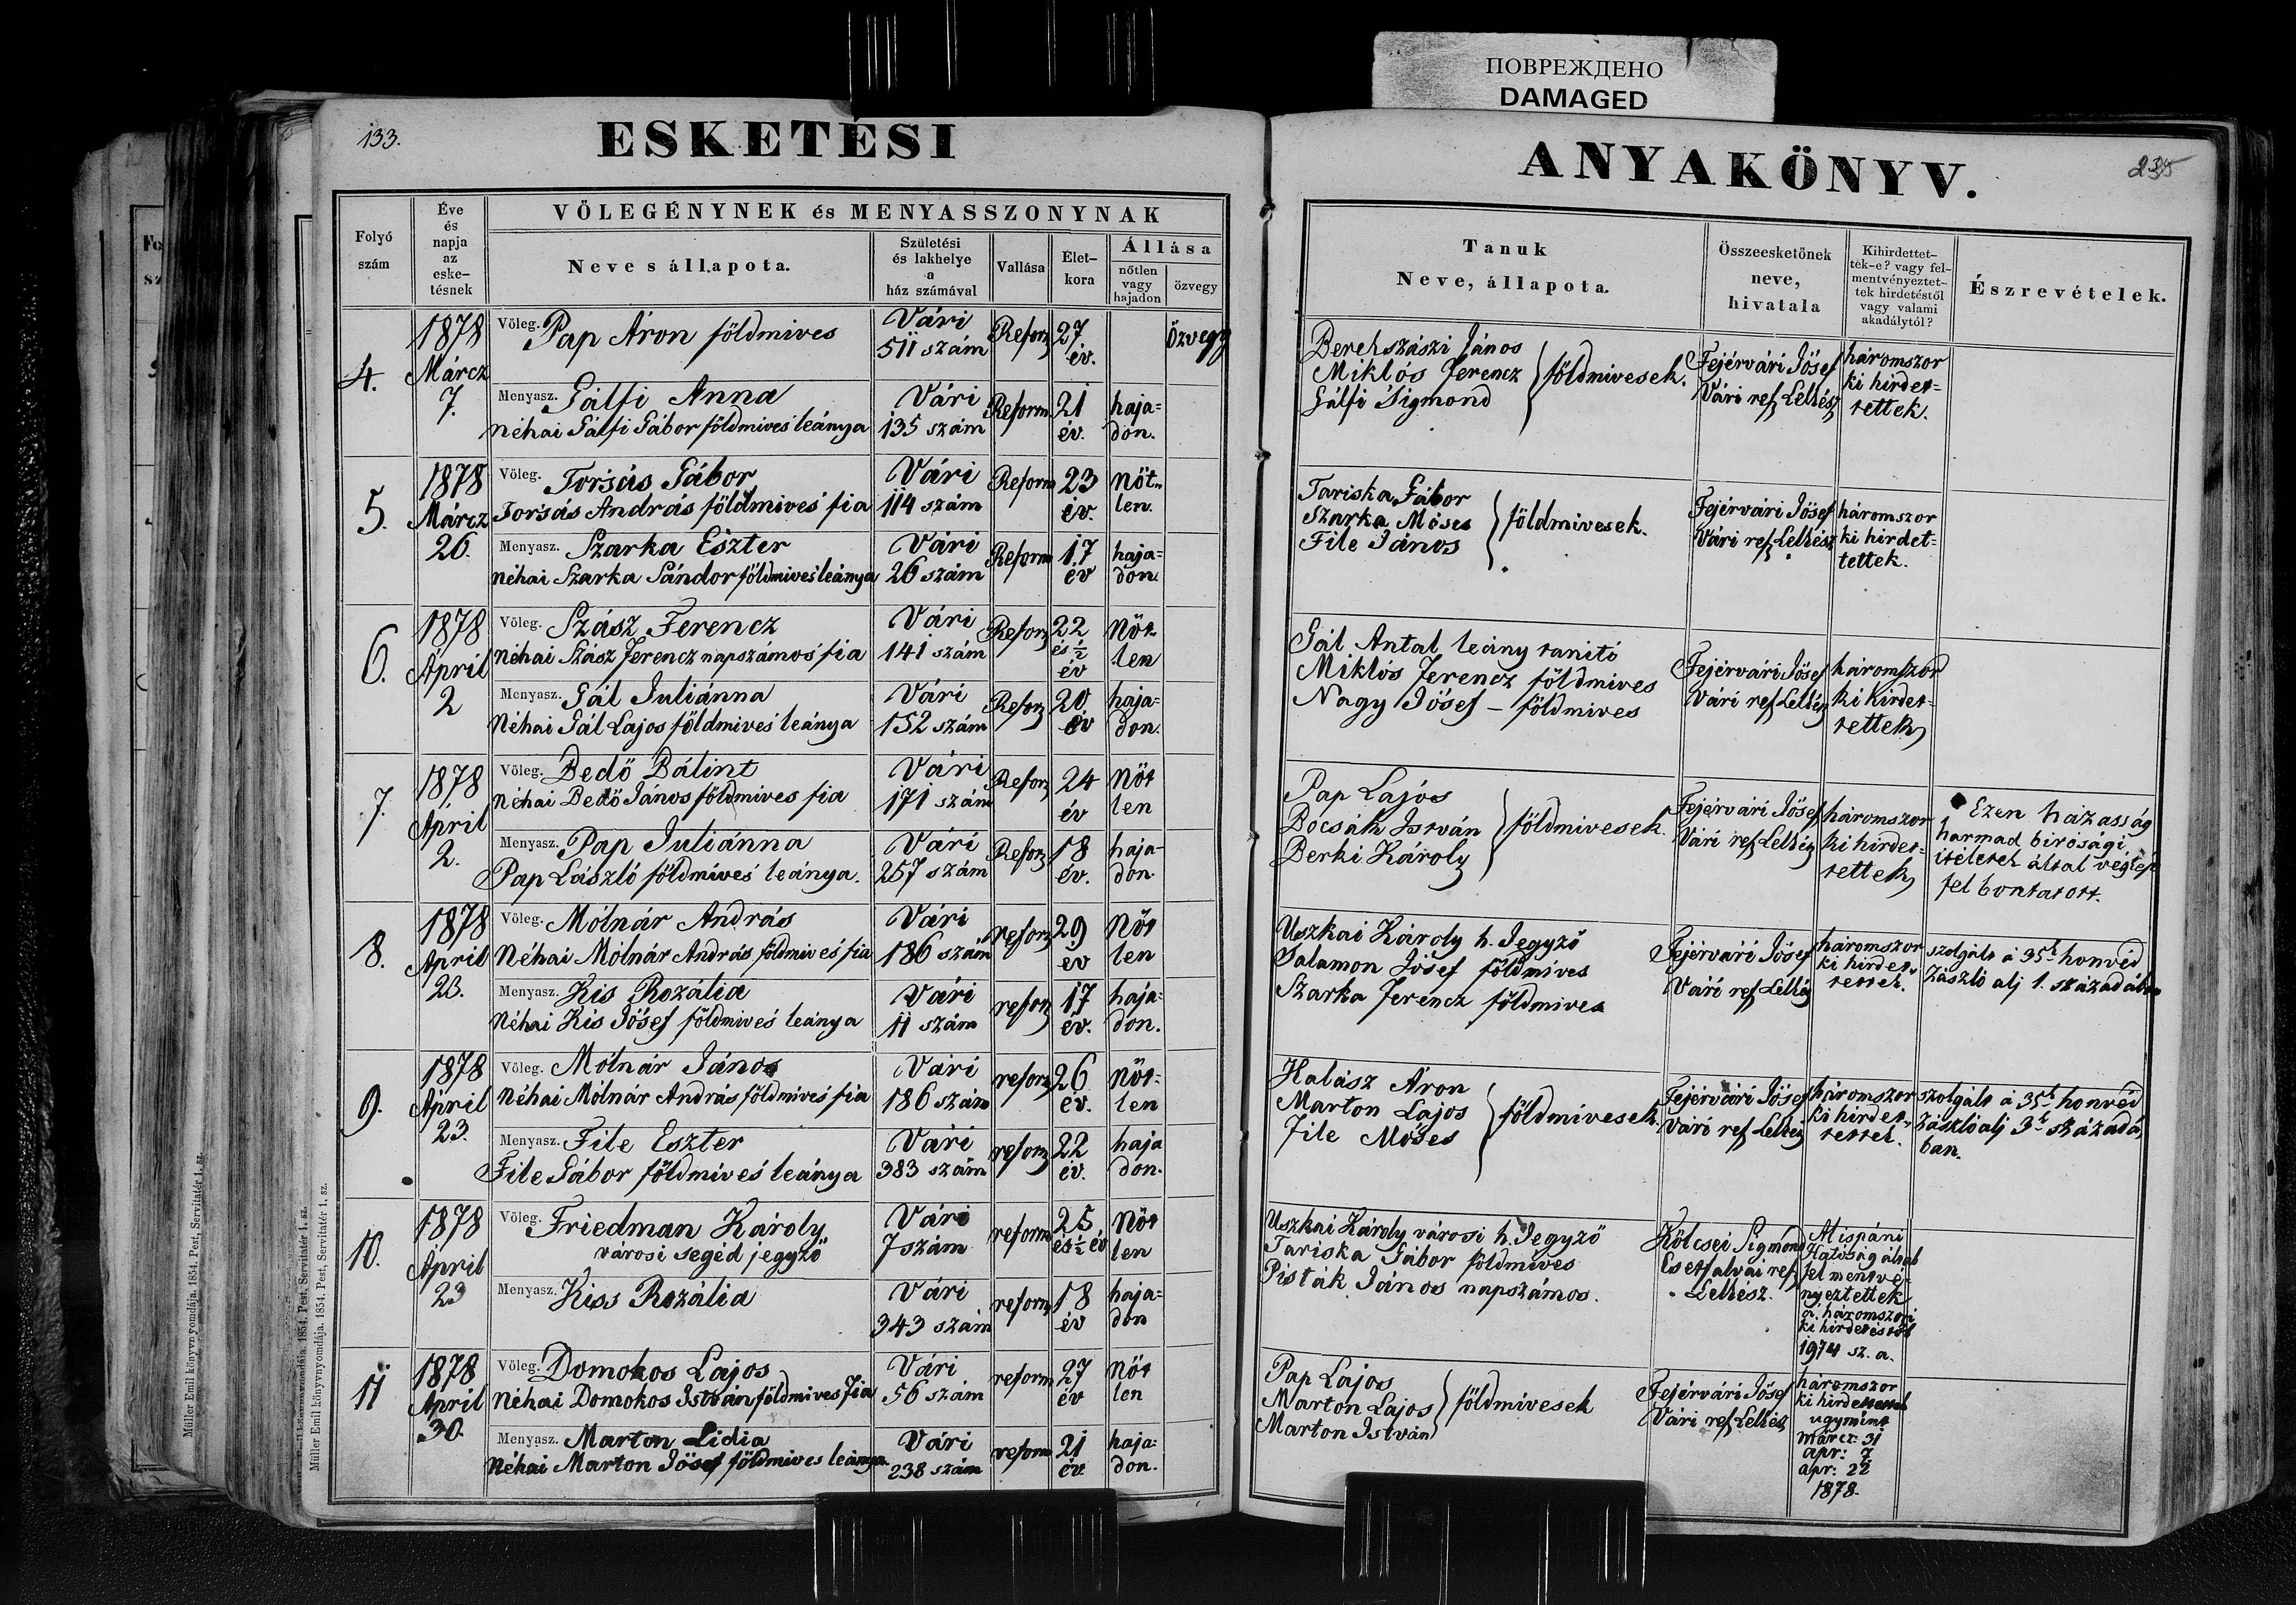 ПОВРЕЖДЕНО
DAMAGED
133.
ESKETÉSI
Folyó
szám
Éve
és
napja
az
eske-
tésnek
VÖLEGÉNYNEK és MENYASSZONYNAK
Neve s állapota.
Születési
és lakhelye
a
ház számával
Vallása
Élet-
kora
Állása
nőtlen
vagy
hajadon
özvegy
4.
1878
Márcz
7.
Völeg. Pap Áron földmives
Vári
511 szám
Reform
27
év.
özvegy
Menyasz. Gálfi Anna
néhai Gálfi Gábor földmives leánya
Vári
135 szám
Reform
21
év.
haja=
don.
5.
1878
Márcz
26.
Völeg. Forsás Gábor
Forsás András földmives fia
Vári
114 szám
Reform
23
év.
nöt=
len.
Menyasz. Szarka Eszter
néhai Szarka Sándor földmives leánya
Vári
26 szám
Reform
17
év
haja=
don.
6.
1878
Ápril
2
Völeg. Szász Ferencz
néhai Szász Ferencz napszámos fia
Vári
141 szám
Reform
22
és ½
év
Nöt-
len
Menyasz. Gál Juliánna
Néhai Gál Lajos földmives leánya
Vári
152 szám
Reform
20
év
haja=
don.
7.
1878
Ápril
2.
Völeg. Bedő Bálint
néhai Bedő János földmives fia
Vári
171 szám
Reform
24
év
Nöt
len
Menyasz. Pap Juliánna
Pap László földmives leánya.
Vári
257 szám
Reform
18
év.
haja-
don
8.
1878
April
23.
Völeg. Mólnár András
Néhai Mólnár András földmives fia
Vári
186 szám
reform
29
év
Nöt
len
Menyasz. Kis Rozália
Néhai Kis Jósef földmives leánya
Vári
11 szám
reform
17
év.
haja=
don.
9.
1878
Ápril
23.
Völeg. Mólnár János
Néhai Mólnár András földmives fia
Vári
186 szám
reform
26
év.
Nöt=
len
Menyasz. File Eszter
File Gábor földmives leánya
Vári
383 szám
reform
22
év.
haja
don.
10.
1878
Ápril
23
Völeg. Friedman Károly
városi segéd jegyző
Vári
7 szám
reform
25
és ½ év
Nöt
len
Menyasz. Kiss Rozália
Vári
343 szám
reform
18
év
haja=
don
11
1878
April
30.
Völeg. Domokos Lajos
Néhai Domokos István földmives Fia
Vári
56 szám
reform
27
év
Nöt
len
Menyasz. Marton Lidia
Néhai Marton Jósef földmives leánya
Vári
238 szám
reform
21
év
haja=
don.
Müller Emil könyvnyomdája. 1854. Pest, Servitatér 1. sz.
Müller Emil könyvnyomdája. 1854. Pest, Servitatér 1. sz.
ANYAKÖNYV.
Tanuk
Neve, állapota.
Összeesketőnek
neve,
hivatala
Kihirdettet-
tek-e? vagy fel-
mentvényeztet-
tek hirdetéstől
vagy valami
akadálytól?
Észrevételek.
Berehszászi János
Miklós Ferencz
Gálfi Sigmond
földmivesek.
Fejérvári Jósef
Vári ref. Lelkész
háromszor
ki hirdet=
tettek.
Tariska Gábor
Szarka Móses
File János
földmivesek.
Fejérvári Jósef
Vári ref Lelkész
háromszor
ki hirdet=
tettek.
Gál Antal leány tanitó
Miklós Ferencz földmives
Nagy Jósef – földmives
Fejérvári Jósef
Vári ref Lelkész
háromszor
ki hirdet-
tettek
Pap Lajos
Bocsák István
Berki Károly
földmivesek.
Fejérvári Jósef
Vári ref Lelkész
háromszor
ki hirdet=
tettek
Ezen házasság
harmad birósági
itéletek által végleg
fel bontatott.
Uszkai Károly h. Jegyző
Salamon Jósef földmives
Szarka Ferencz földmives
Fejérvári Jósef
Vári ref Lelkész
háromszor
ki hirdet
tettek.
szolgált a 35k honvéd
Zászló alj 1. században
Halász Áron
Marton Lajos
File Móses
földmivesek.
Fejérvári Jósef
Vári ref Lelkész
háromszor
ki hirdet
tettek.
szolgált a 35k honvéd
Zászlóalj 3k századá
ban.
Uszkai Károly városi h. Jegyző
Tariska Gábor földmives
Pisták János napszámos.
Kölcsei Sigmond
Csetfalvai ref
Lelkész.
Mispáni
Hatóság által
fel mentvé-
nyeztettek
a háromszori
ki hirdetéstől
1974 sz. a.
Pap Lajos
Marton Lajos
Marton István
földmivesek
Fejérvári Jósef
Vári ref Lelkész
háromszor
ki hirdettettek
ugymint
márcz: 31
apr: 7
apr: 22
1878.